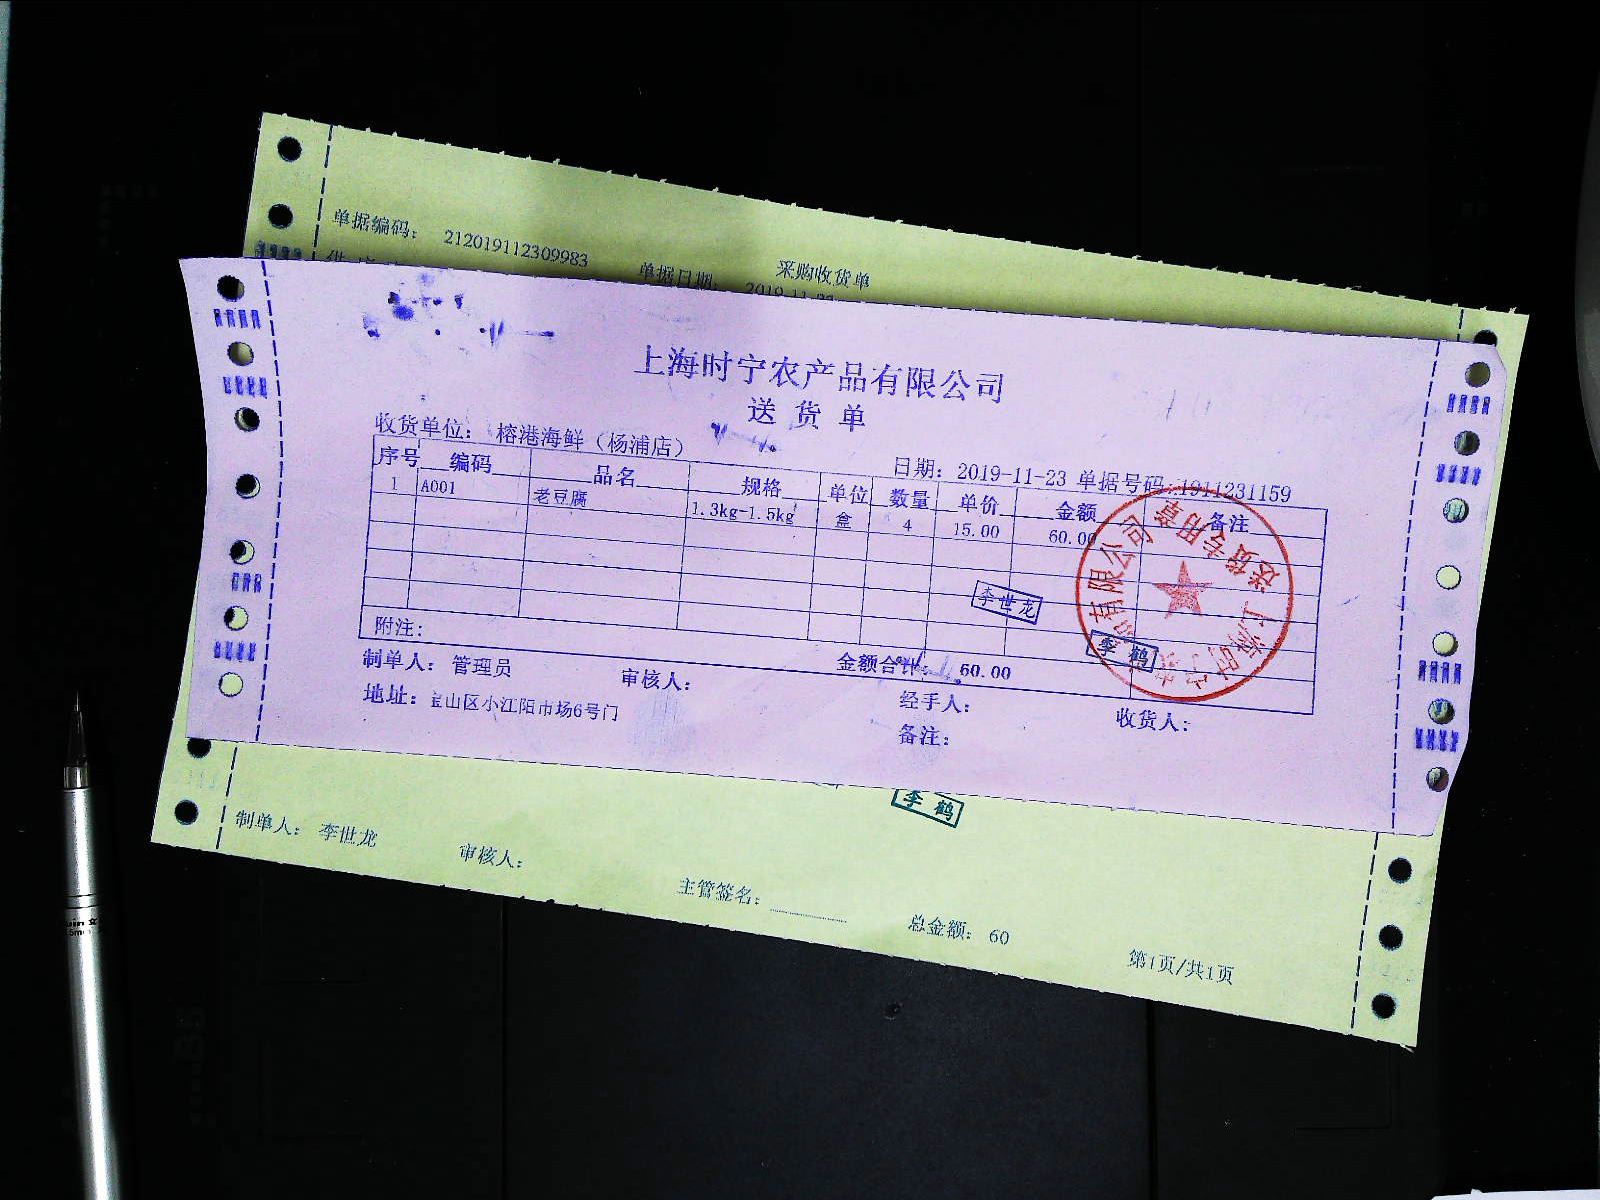 单据编码： 212019112309983 采购收货单
单据日期： 2019-11-23
上海时宁农产品有限公司
送 货 单
收货单位： 榕港海鲜（杨浦店） 日期：2019-11-23 单据号码：1911231159
序号 编码 品名 规格 单位 数量 单价 金额 备注
1 A001 老豆腐 1.3kg-1.5kg 盒 4 15.00 60.00
李世龙
李 鹤
有限公司 送货专用章 上海时宁
附注：
金额合计： 60.00
制单人： 管理员 审核人： 经手人： 收货人：
地址：宝山区小江阳市场6号门 备注：
李 鹤
制单人： 李世龙 审核人： 主管签名： 总金额： 60 第1页/共1页